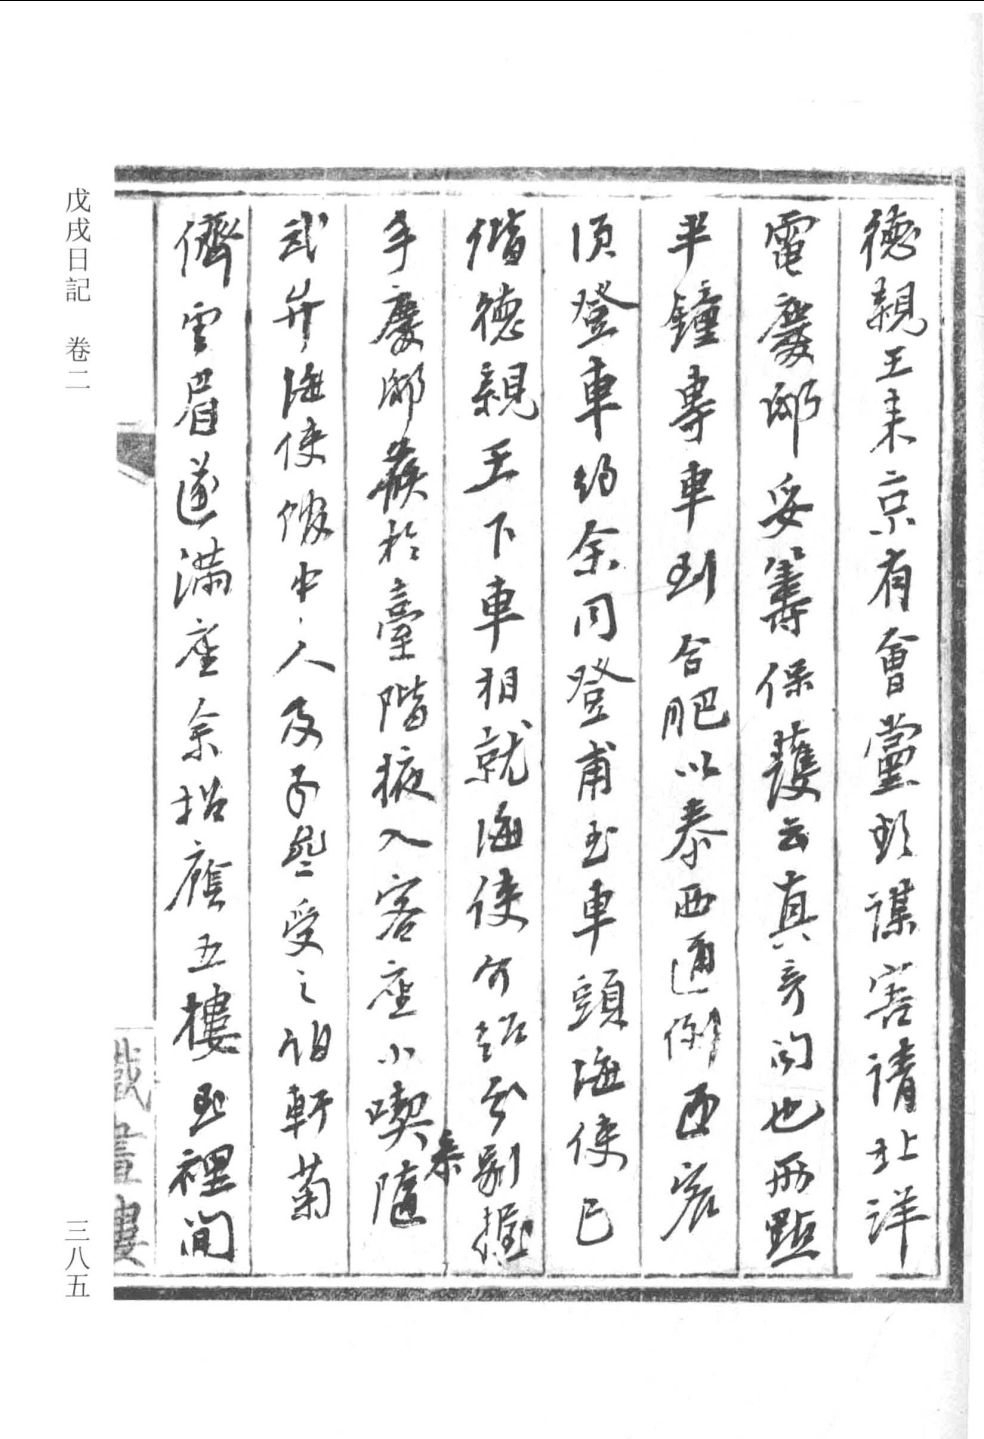 德親王來京有會黨欲謀害請北洋
電慶邸妥籌保護云真奇聞也兩點
半鐘專車到合肥以泰西通例西賓
須登車約余同登甫至車頭海使已
偕德親王下車相就海使介紹分別握
手慶邸候於臺階掖入客座小喫隨來
武弁海使館中人及子 受之詒軒菊
儕雲眉遂滿座余招應五樓至裡間
戊戌日記 卷二
三八五